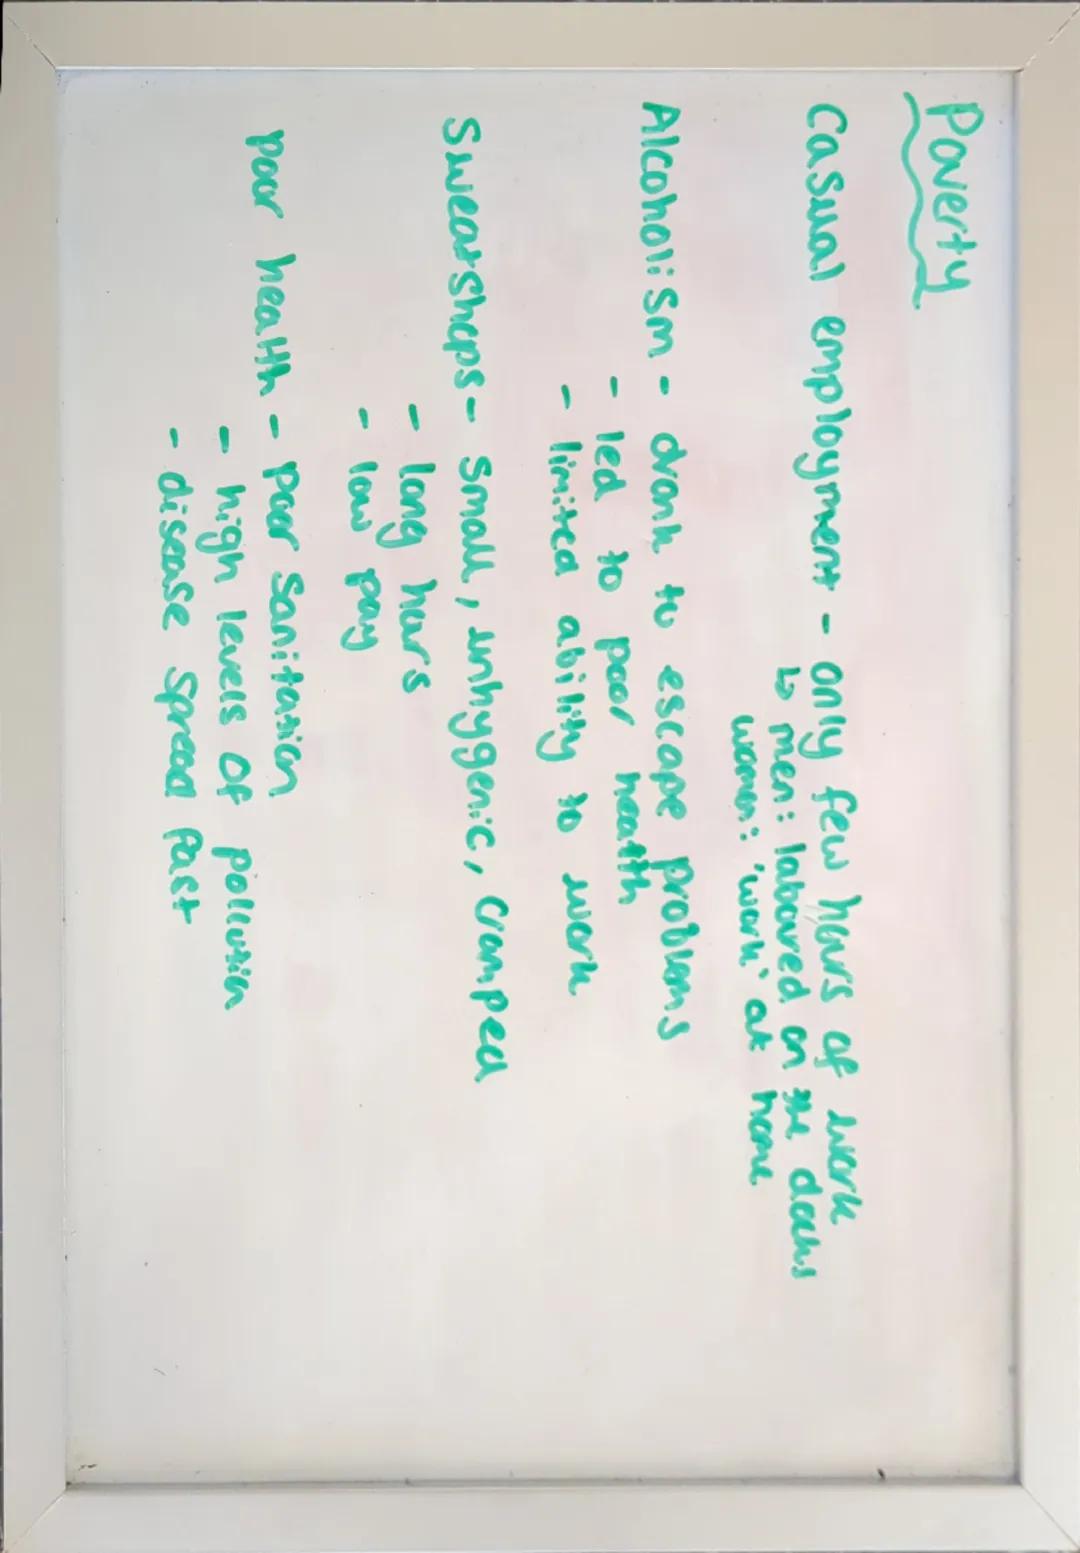 Poverty
Casual employment - only few hours of work
↳ men: laboured on the docks
women: 'work' at home
Alcoholism - drank to escape problems
- led to poor health
- limited ability to work
Sweatshops - small, unhygenic, cramped
- long hours
- low pay
poor health - poor sanitation
- high levels of pollution
- disease spread fast